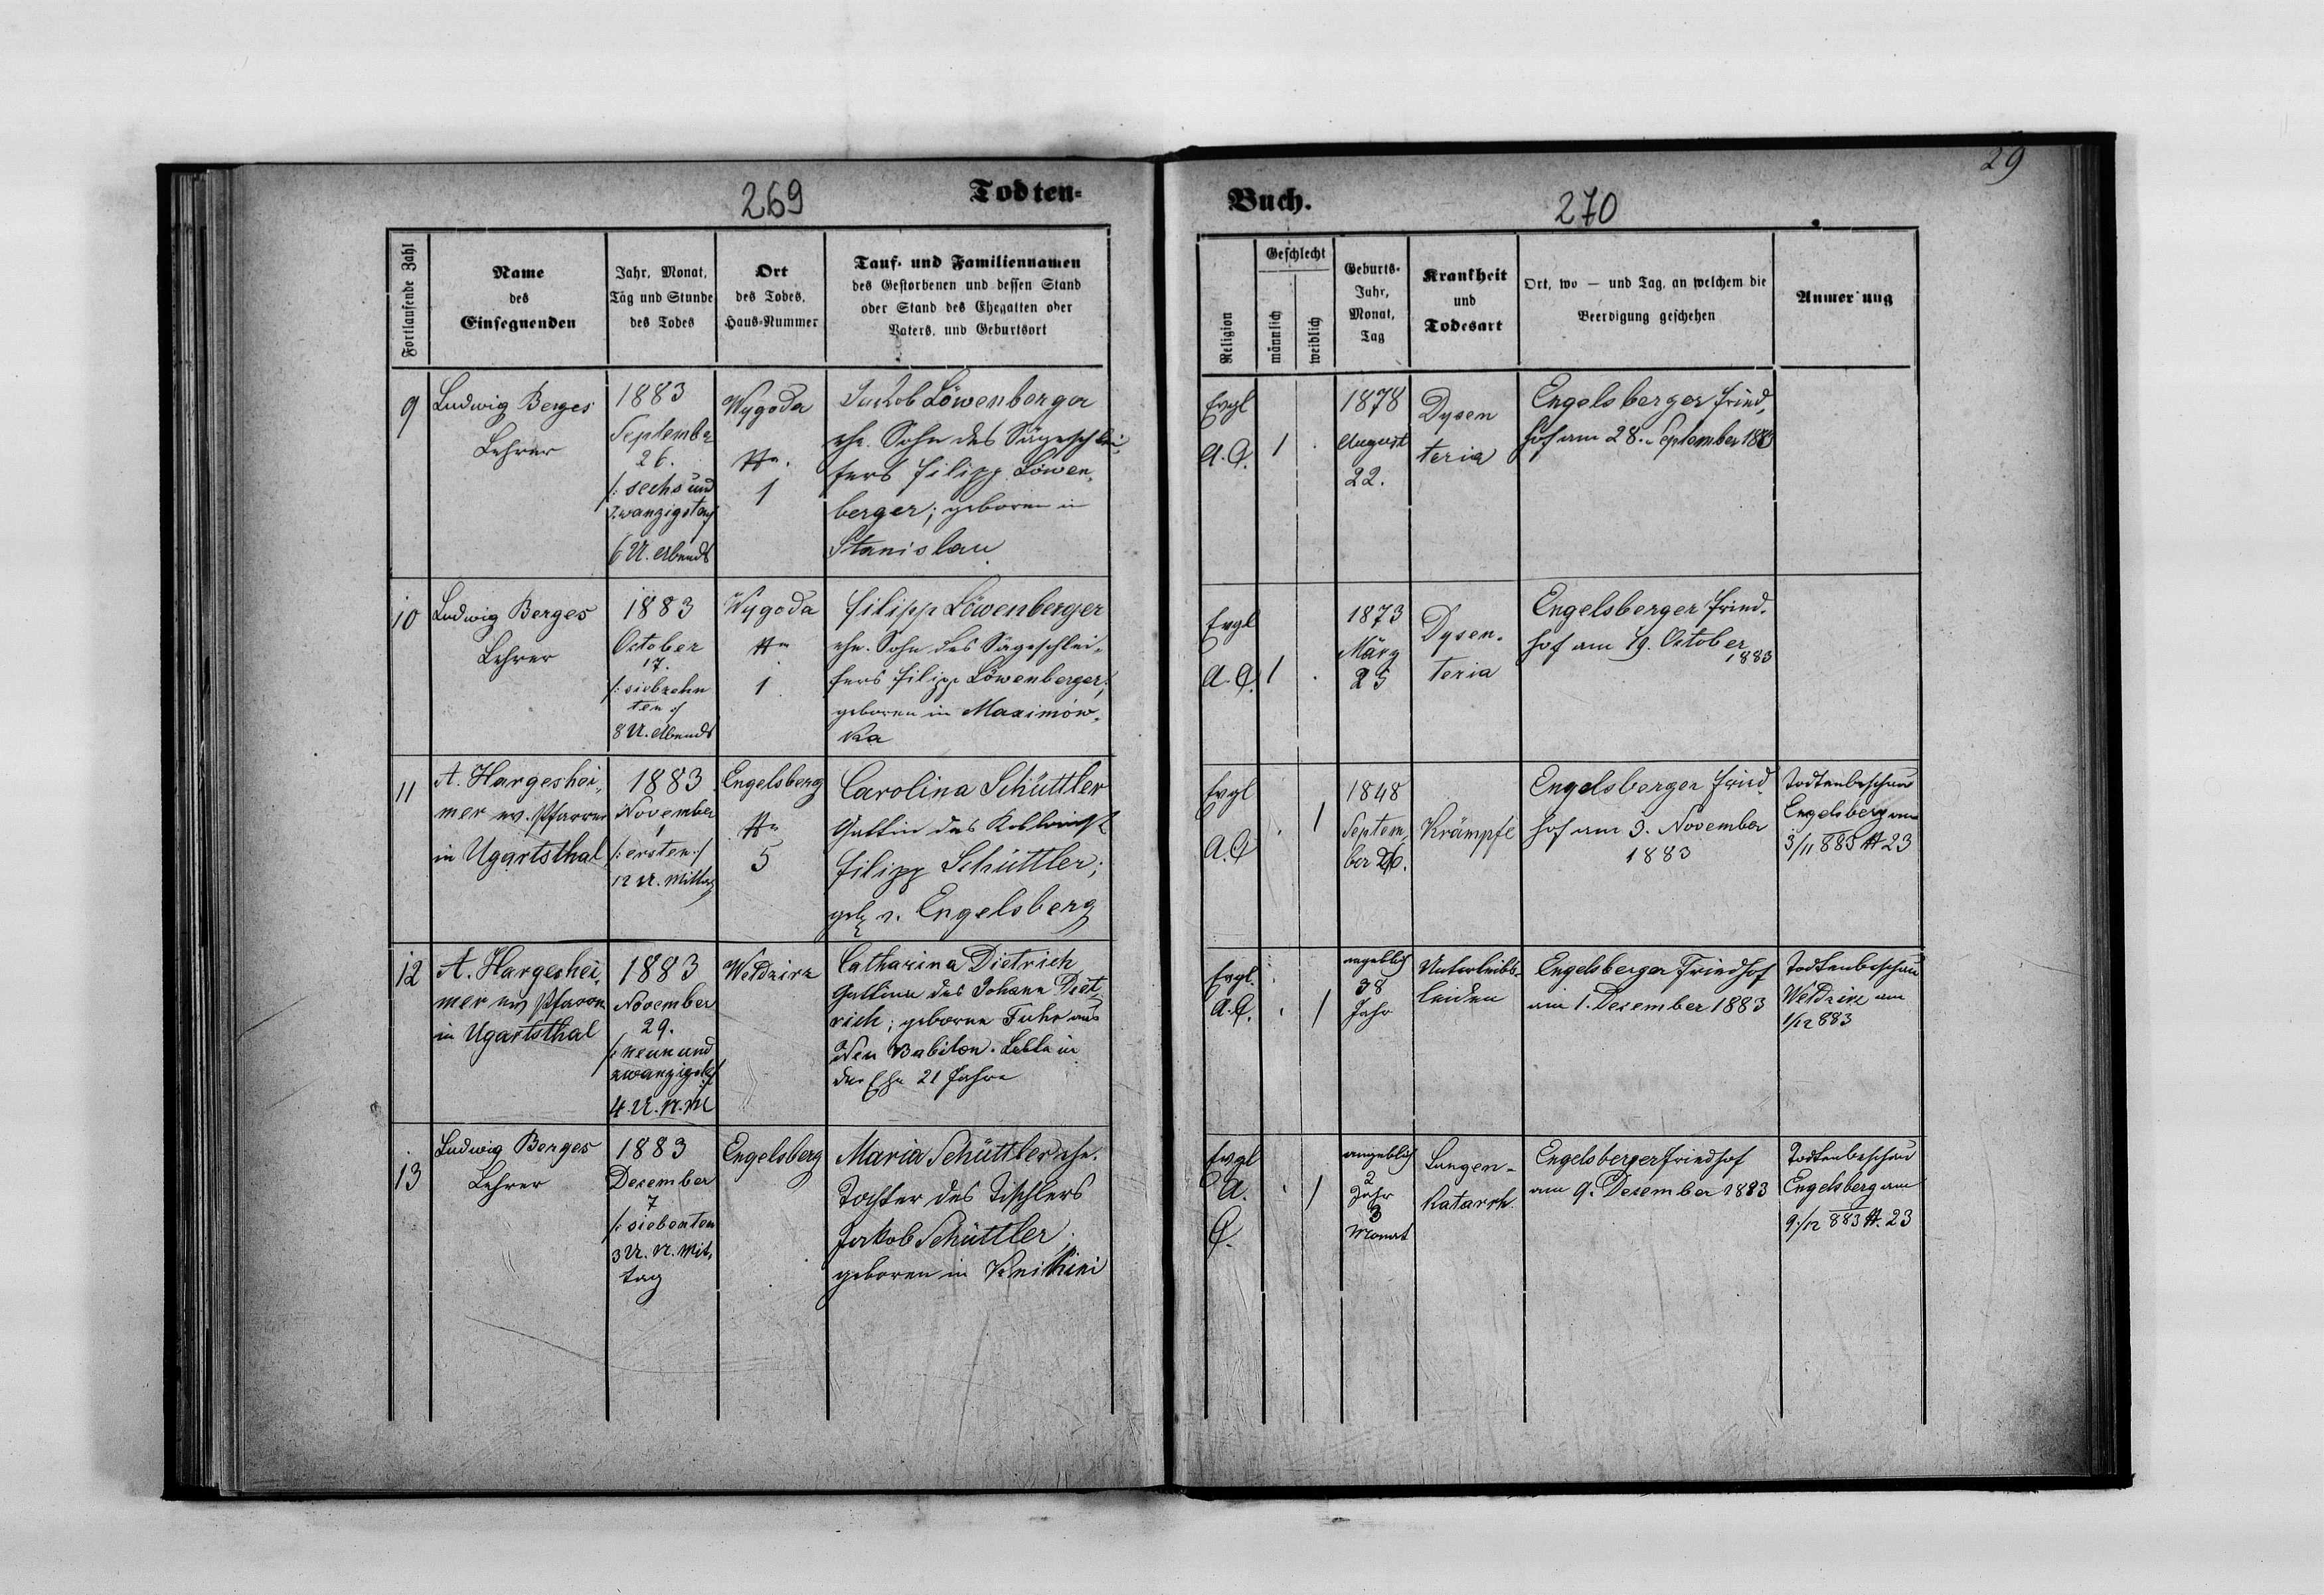 269
Todten-
Fortlaufende Zahl
Name
des
Einsegnenden
Jahr, Monat,
Tag und Stunde
des Todes
Ort
des Todes,
Haus-Nummer
Tauf- und Familiennamen
des Gestorbenen und dessen Stand
oder Stand des Ehegatten oder
Vaters, und Geburtsort
9
Ludwig Berges
Lehrer
1883
September
26.
/: sechs und
zwanzigsten :/
6 U. Abends
Wygoda
Nr.
1
Jackob Löwenberger
ehe. Sohn des Sägeschlei,
fers Filipp Löwen,
berger; geboren in
Stanislau
10
Ludwig Berges
Lehrer
1883
October
17.
/: siebzehn
ten :/
8 U. Abends
Wygoda
Nr
1
Filipp Löwenberger
ehe. Sohn des Sägeschlei,
fers Filipp Löwenberger;
geboren in Maximów,
ka
11
A. Hargeshei,
mer ev. Pfarrer
in Ugartsthal
1883
November
1
/: ersten :/
12 U. Mittag
Engelsberg
Nr
5
Carolina Schüttler
Gattin des Kollonist
Filipp Schüttler;
geb. v. Engelsberg
12
A. Hargeshei,
mer ev. Pfarrer
in Ugartsthal
1883
November
29.
/: neun und
zwanzigst :/
4. U. N. M
Weldzirz
Catharina Dietrich
Gattin des Johann Diet,
rich; geborne Fuhr aus
Neu Babilon. Lebte in
der Ehe 21 Jahre
13
Ludwig Berges
Lehrer
1883
Dezember
7
/: siebenten
3 U. N. Mit,
tag
Engelsberg
Maria Schüttler ehe.
Tochter des Tischlers
Jakob Schüttler
geboren in Knihini
29
Buch.
270
Religion
Geschlecht
männlich
weiblich
Geburts-
Jahr,
Monat,
Tag
Krankheit
und
Todesart
Ort, wo — und Tag, an welchem die
Beerdigung geschehen
Anmer ung
Evgl
A. C.
1
1878
August
22.
Dysen
teria
Engelsberger Fried,
hof am 28. September 1883
Evgl
A. C.
1
1873
März
25
Dysen-
teria
Engelsberger Fried-
hof am 19. October
1883
Evgl
A. C
1
1848
Septem,
ber 26.
Krämpfe
Engelsberger Fried
hof am 3. November
1883
Todtenbeschau
Engelsberg am
3/11 883 N 23
Evgl.
A. C.
1
angeblich
38
Jahr
Unterleibs-
leiden
Engelsberger Friedhof
am 1. Dezember 1883
Todtenbeschau
Weldzirz am
1/12 883
Evgl
A.
C.
1
angeblich
2
Jahr
3
Monat
Lungen-
Katarrh.
Engelsberger Friedhof
am 9. Dezember 1883
Todtenbeschau
Engelsberg am
9./12 883 N. 23